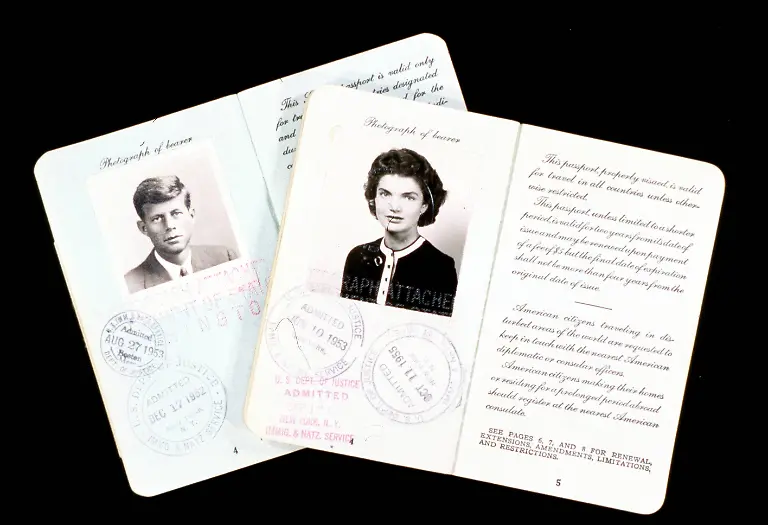 Photograph of bearer
This
passport is valid only
for
countries designated
and
for the
ATTACHE
AUG 27 1953
Admitted
Boston
ADMITTED
DEC 17 1952
N. Y.
& NATZ. SERVICE
4
Photograph of bearer
ATTACHE
ADMITTED
10 1953
SERVICE
ADMITTED
OCT 11 1955
U. S. DEPT. OF JUSTICE
ADMITTED
NEW YORK, N. Y.
IMMIG. & NATZ. SERVICE
4
This passport, properly visaed, is valid
for travel in all countries unless other-
wise restricted.
This passport, unless limited to a shorter
period, is valid for two years from its date of
issue and may be renewed upon payment
of a fee of $5 but the final date of expiration
shall not be more than four years from the
original date of issue.
American citizens traveling in dis-
turbed areas of the world are requested to
keep in touch with the nearest American
diplomatic or consular officers.
American citizens making their homes
or residing for a prolonged period abroad
should register at the nearest American
consulate.
SEE PAGES 6, 7, AND 8 FOR RENEWAL,
EXTENSIONS, AMENDMENTS, LIMITATIONS,
AND RESTRICTIONS.
5